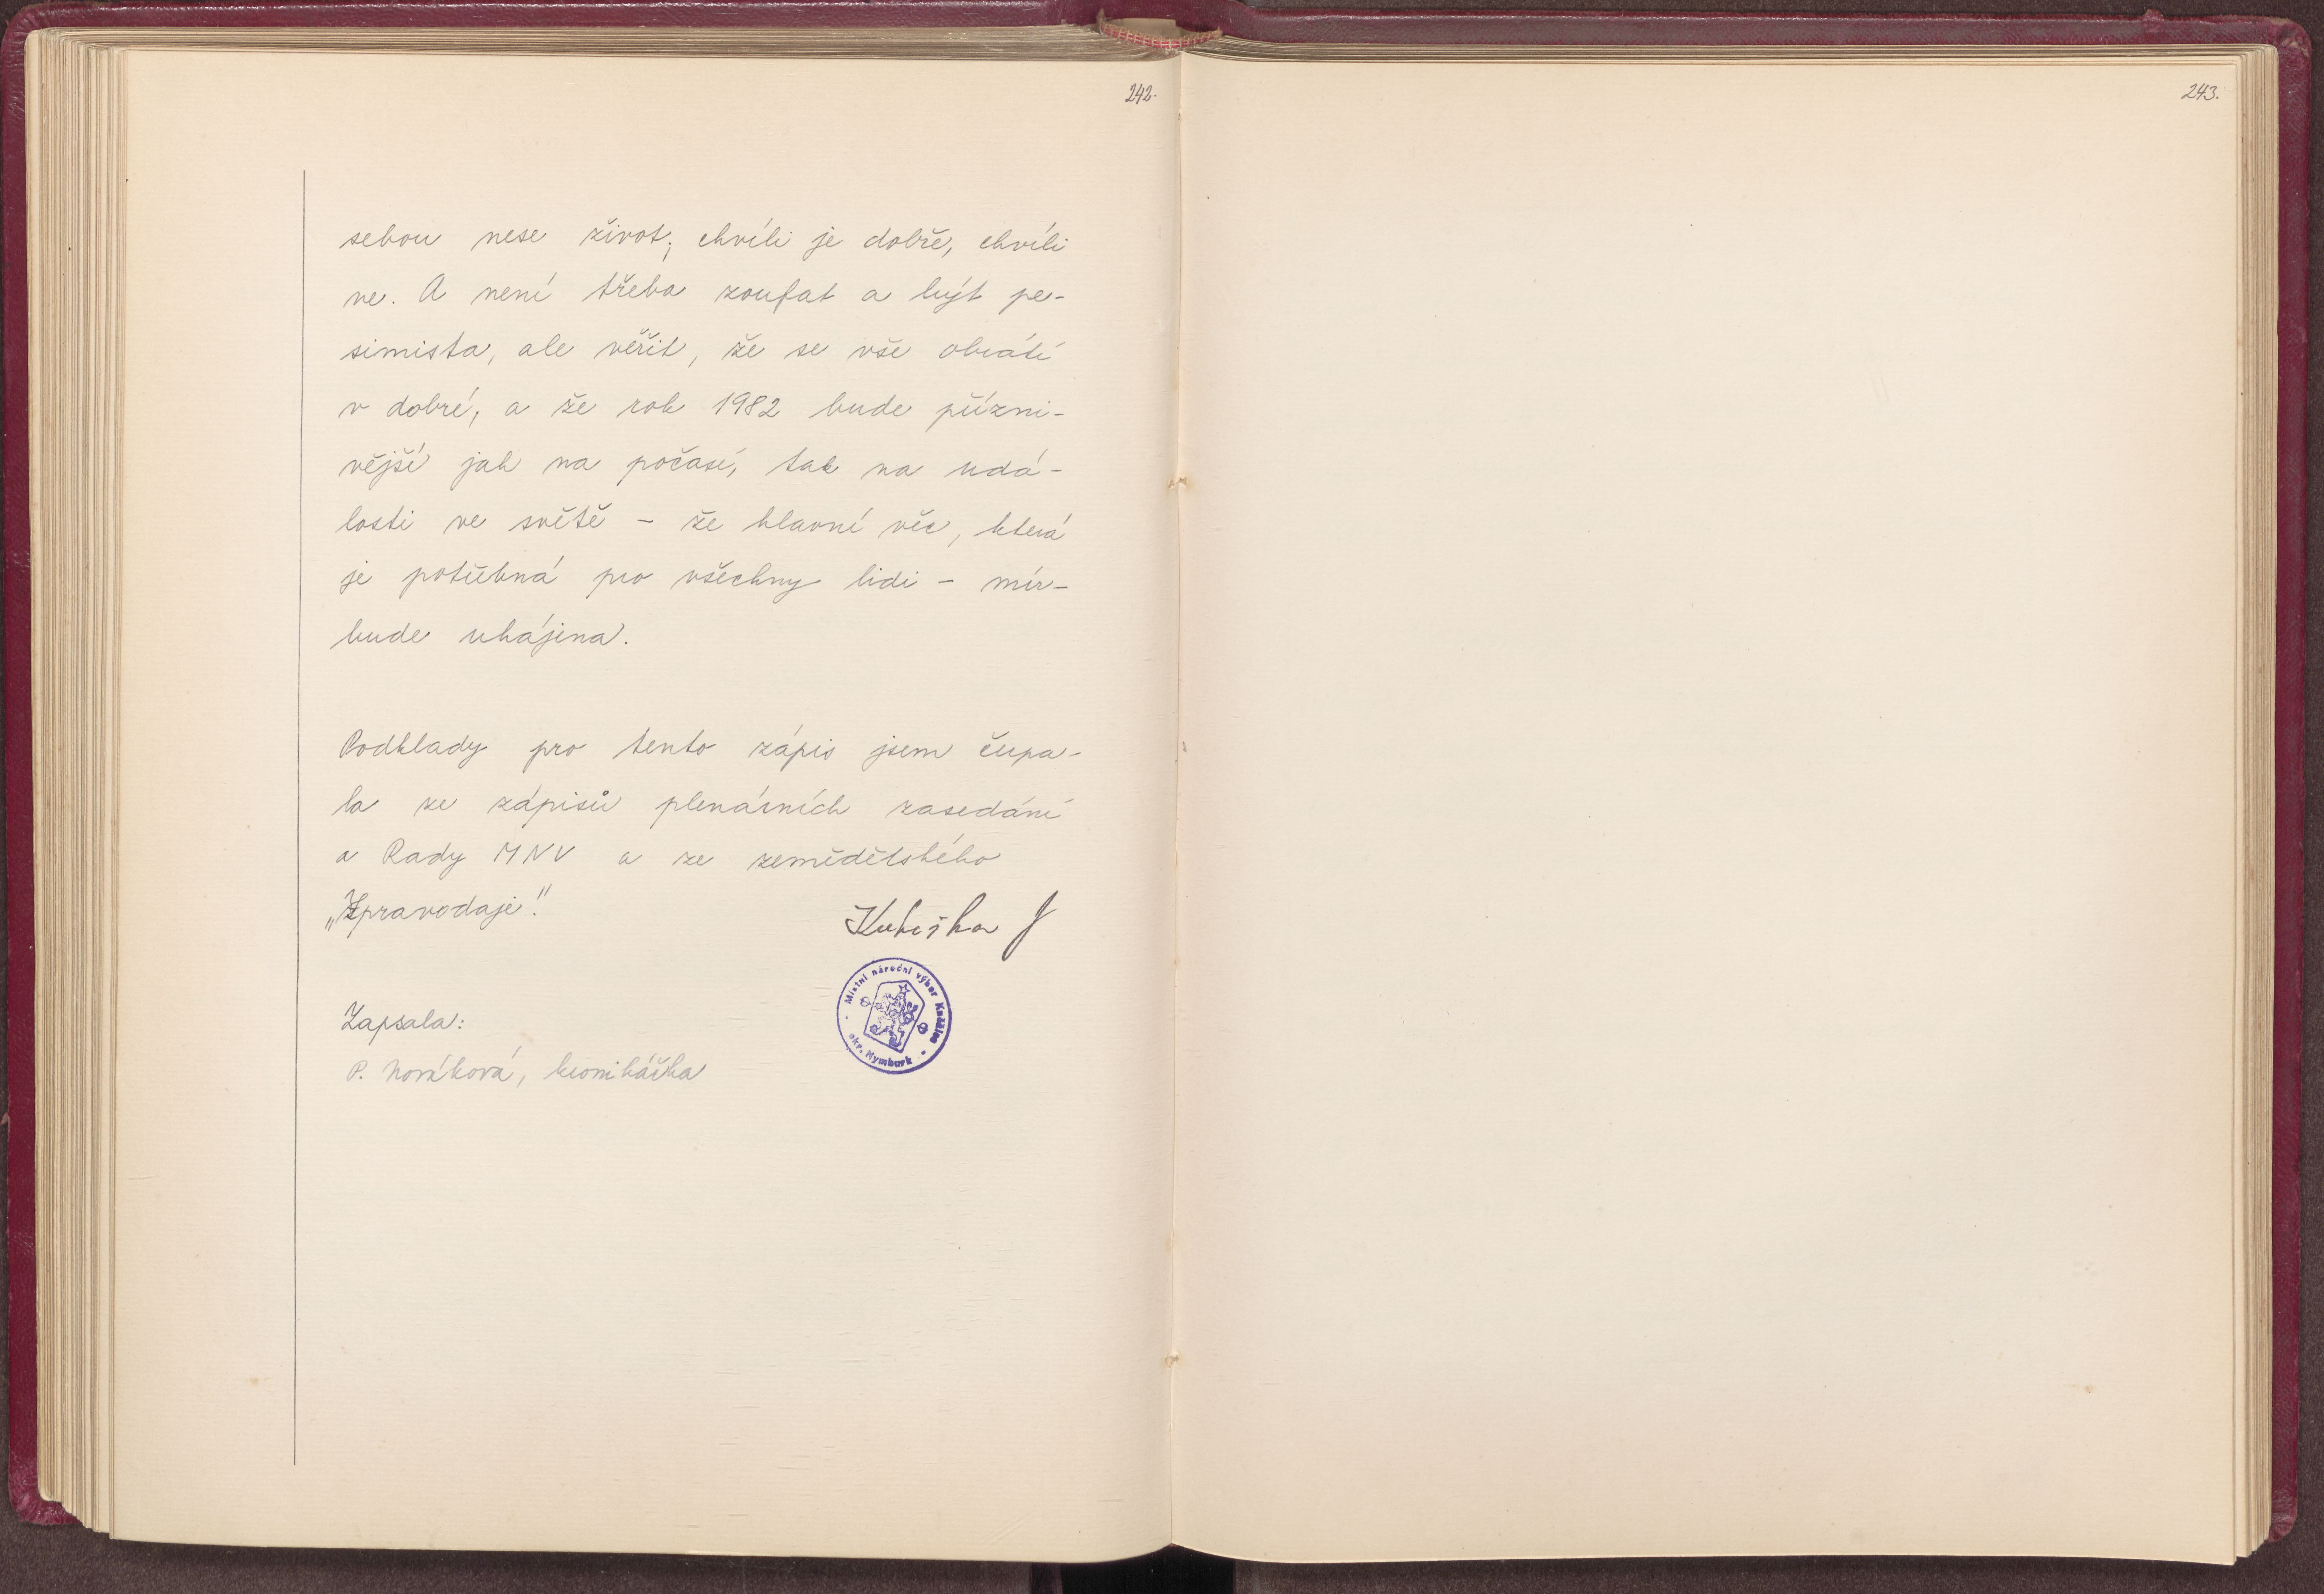 242.
sebou nese život; chvíli je dobře, chvíli
ne. A není třeba zoufat a být pe-
simista, ale věřit, že se vše obrátí
v dobré, a že rok 1982 bude přízni-
vější jak na počasí, tak na udá-
losti ve světě - že hlavní věc, která
je potřebná pro všechny lidi - mír -
bude uhájena.
Podklady pro tento zápis jsem čerpa-
la ze zápisů plenárních zasedání
a Rady MNV a ze zemědělského
„Zpravodaje".
Kubiška J
Místní národní výbor
okr. Nymburk
Zapsala:
P. Nováková, kronikářka
243.